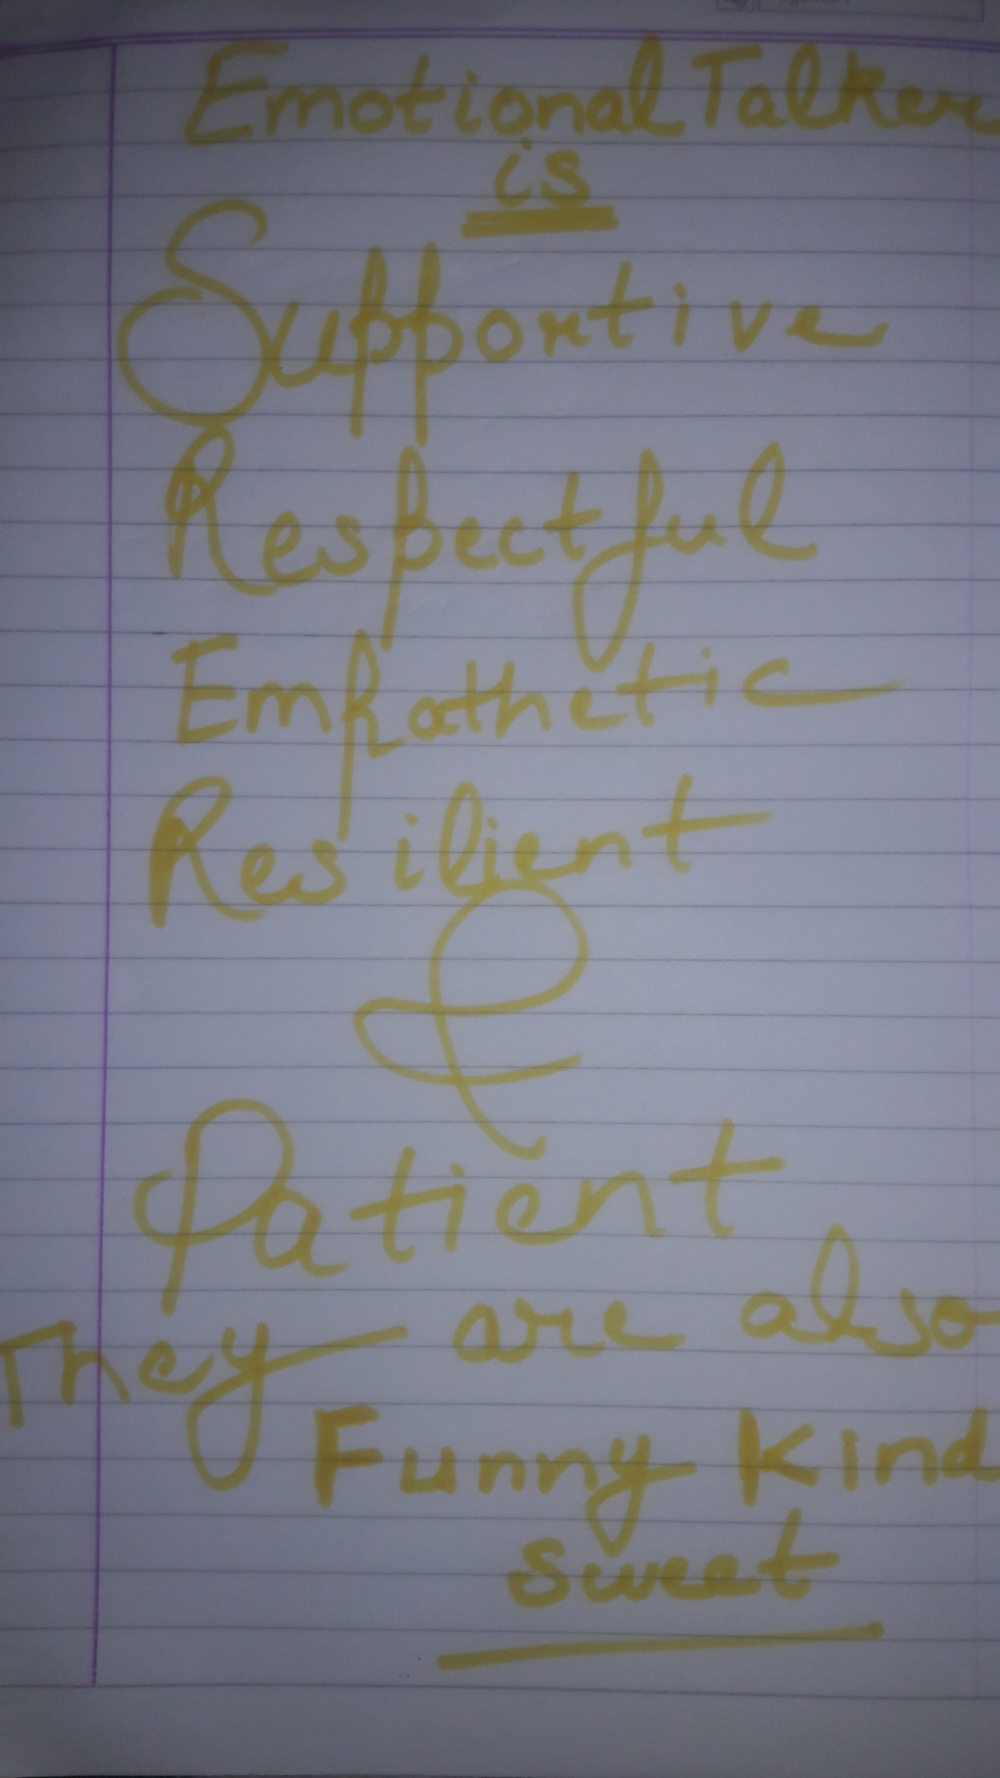 Emotional Talker
is
Supportive
Respectful
Empathetic
Resilient
&
Patient
They are also
Funny Kind
sweet